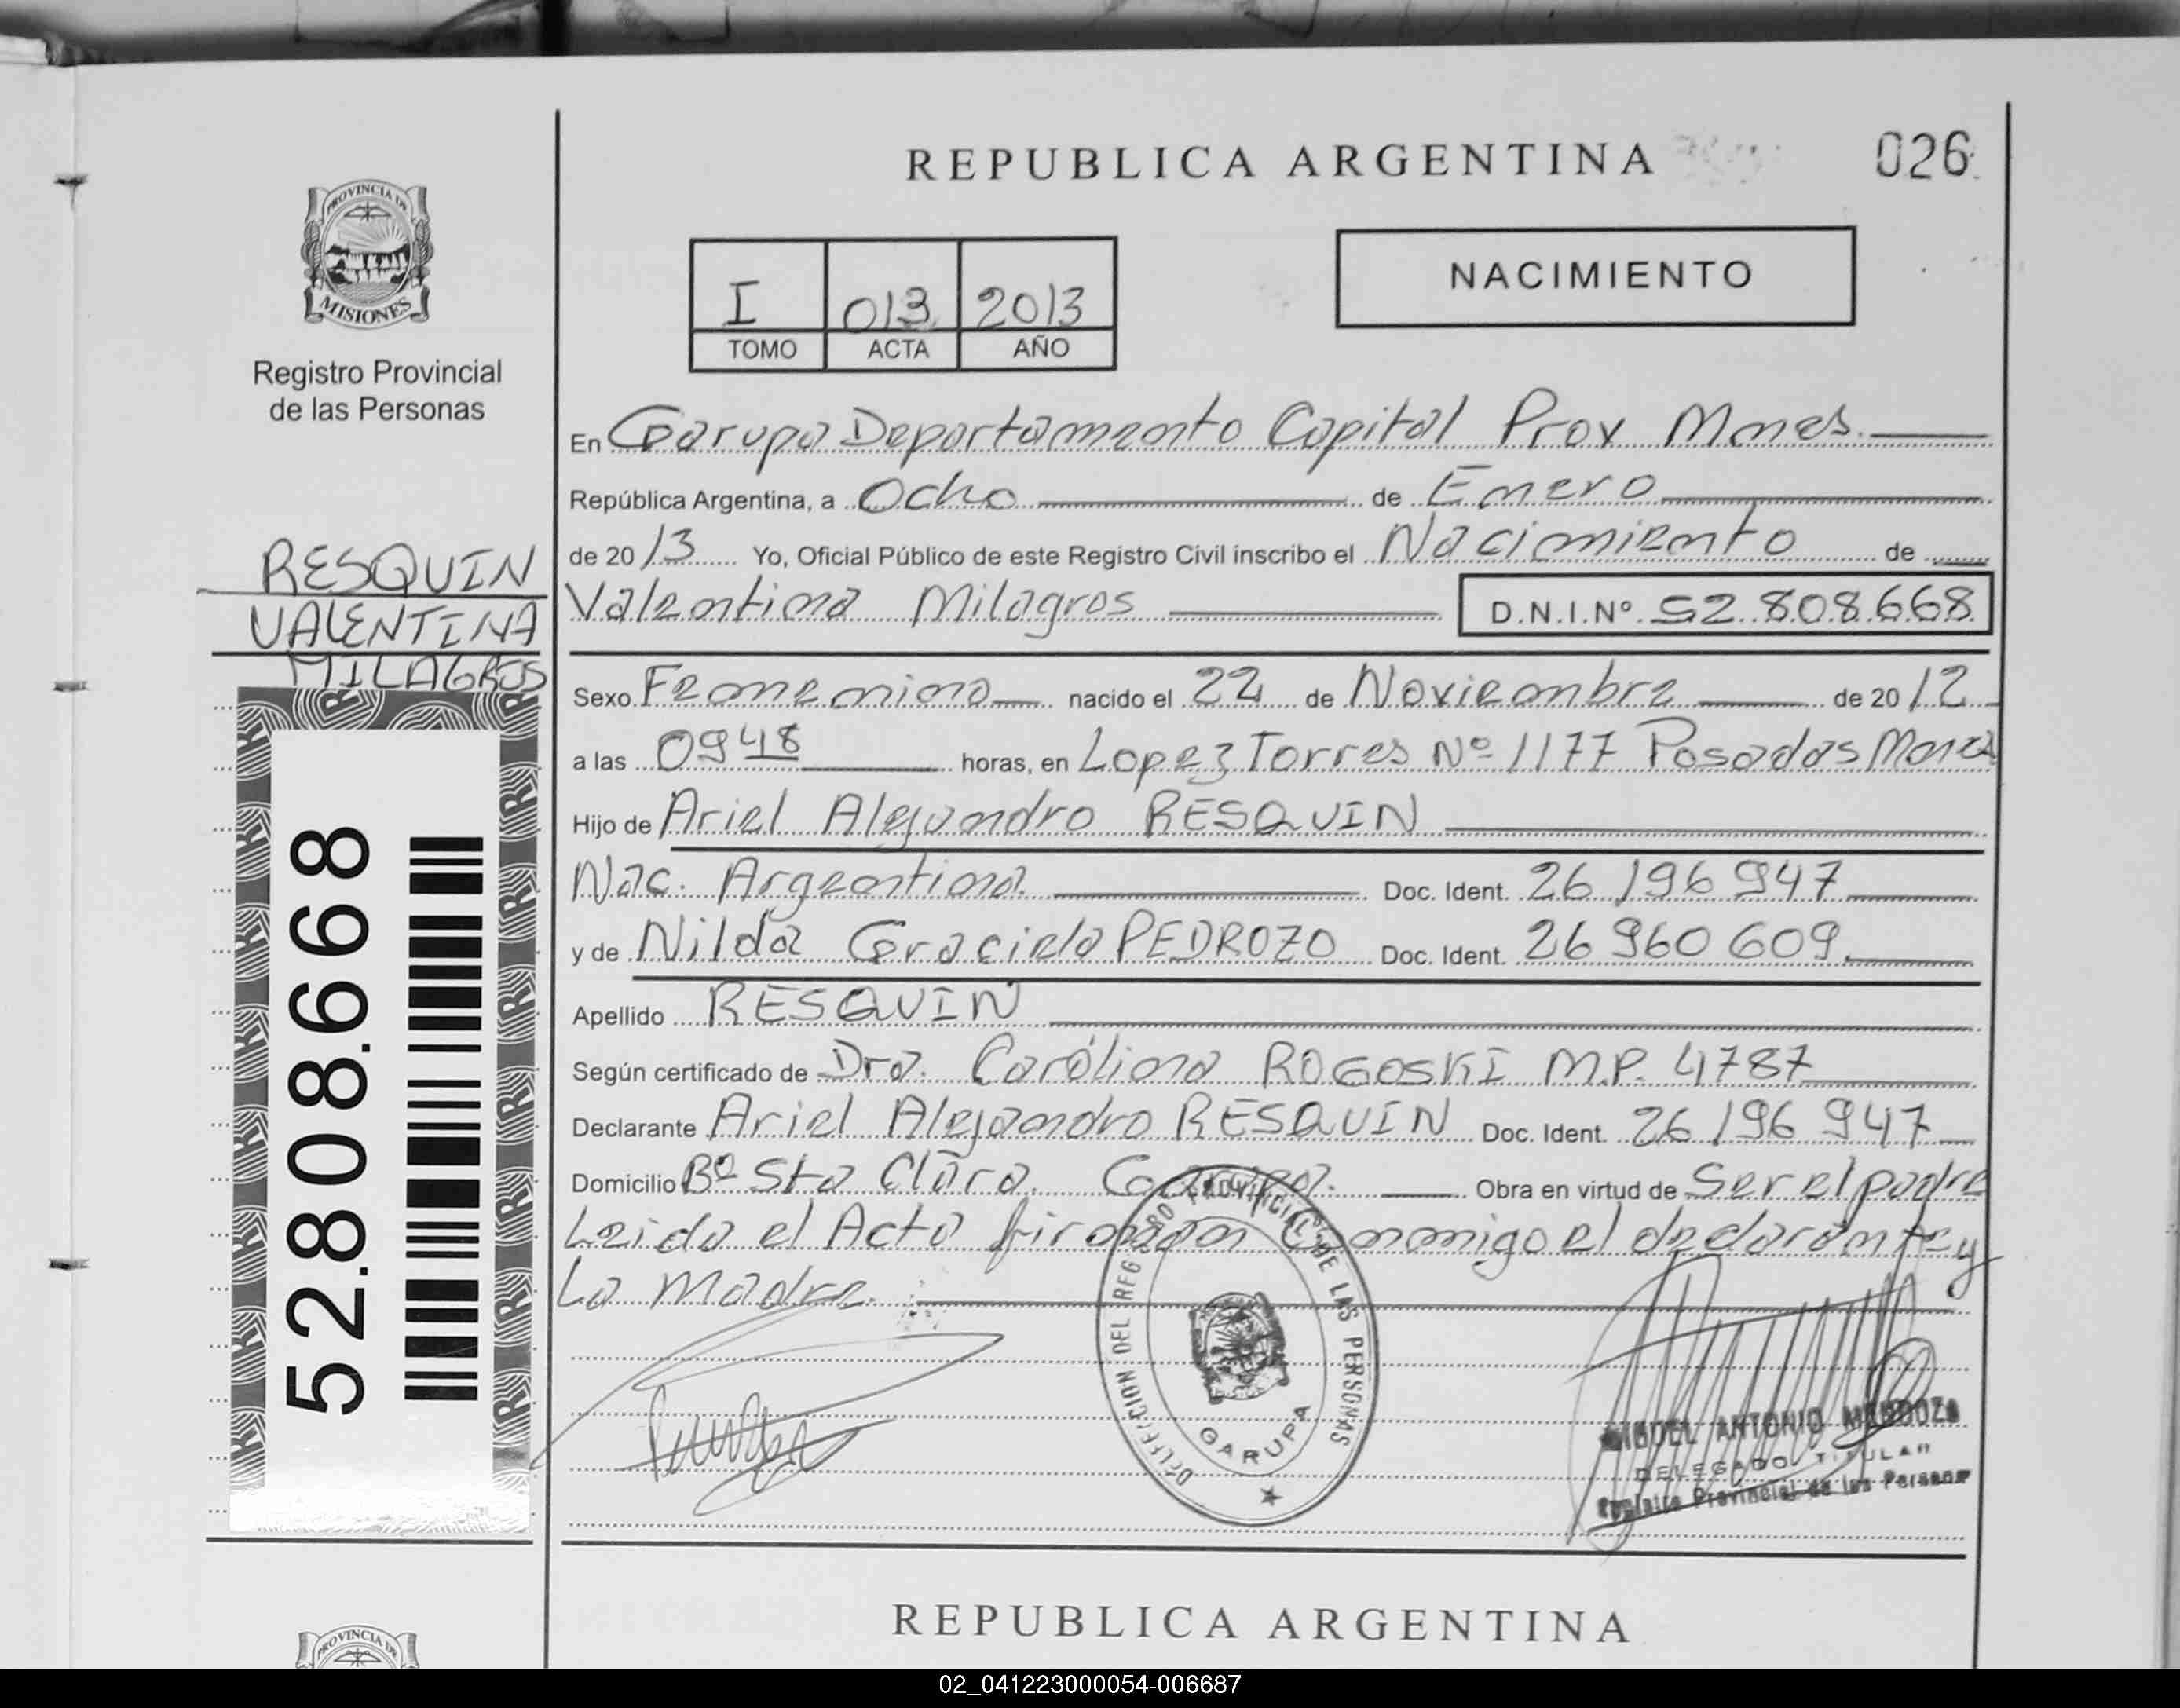 REPUBLICA ARGENTINA
026
PROVINCIA DE
MISIONES
Registro Provincial
de las Personas
I 013 2013
TOMO ACTA AÑO
NACIMIENTO
RESQUIN
VALENTINA
MILAGROS
52.808.668
En Garupa Departamento Capital Prov Mnes.
República Argentina, a Ocho de Enero
de 2013 Yo, Oficial Público de este Registro Civil inscribo el Nacimiento de
Valentina Milagros D.N.I.Nº 52.808.668
Sexo Femenino nacido el 22 de Noviembre de 2012
a las 0948 horas, en Lopez Torres Nº 1177 Posadas Mnes
Hijo de Ariel Alejandro RESQUIN
Nac. Argentina Doc. Ident. 26 196 947
y de Nilda Graciela PEDROZO Doc. Ident. 26 960 609
Apellido RESQUIN
Según certificado de Dra. Carolina ROGOSKI M.P. 4787
Declarante Ariel Alejandro RESQUIN Doc. Ident. 26 196 947
Domicilio Bº Sta Clara. Garupa. Obra en virtud de Ser el padre
Leida el Acta firman Conmigo el declarante y
La Madre.
DELEGACION DEL REG PROVINCIAL DE LAS PERSONAS
GARUPA
MIGUEL ANTONIO MENDOZA
DELEGADO TITULAR
Registro Provincial de las Personas
REPUBLICA ARGENTINA
PROVINCIA DE
02_041223000054-006687